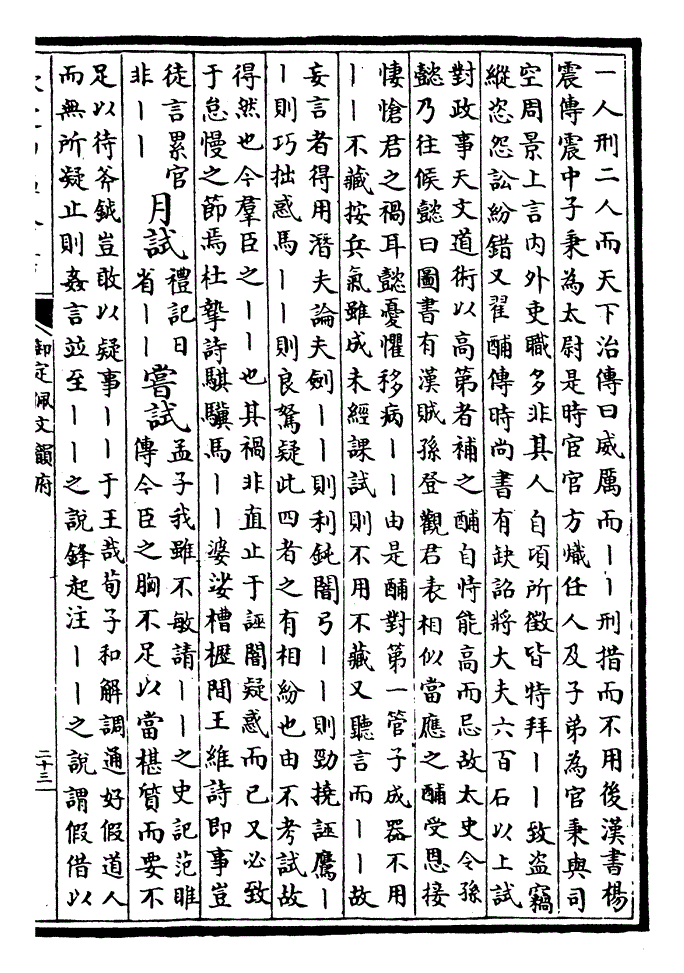 一人刑二人而天下治傳曰威厲而丨丨刑措而不用後漢書楊
震傳震中子秉為太尉是時宦官方熾任人及子弟為官秉與司
空周景上言內外吏職多非其人自頃所徵皆特拜丨丨致盜竊
縱恣怨訟紛錯又翟酺傳時尚書有缺詔將大夫六百石以上試
對政事天文道術以高第者補之酺自恃能高而忌故太史令孫
懿乃往候懿曰圖書有漢賊孫登觀君表相似當應之酺受恩接
悽愴君之禍耳懿憂懼移病丨丨由是酺對第一管子成器不用
丨丨不藏按兵氣雖成未經課試則不用不藏又聽言而丨丨故
妄言者得用潛夫論夫劍丨丨則利鈍闇弓丨丨則勁撓誣鷹丨
丨則巧拙惑馬丨丨則良駑疑此四者之有相紛也由不考試故
得然也今羣臣之丨丨也其禍非直止于誣闇疑惑而已又必致
于怠慢之節焉杜摯詩騏驥馬丨丨婆娑槽櫪間王維詩即事豈
徒言累官
非丨丨
月試
禮記日
省丨丨
嘗試
孟子我雖不敏請丨丨之史記范雎
傳今臣之胸不足以當椹質而要不
足以待斧鉞豈敢以疑事丨丨于王哉荀子和解調通好假道人
而無所疑止則姦言並至丨丨之說鋒起注丨丨之說謂假借以
御定佩文韻府
二十三